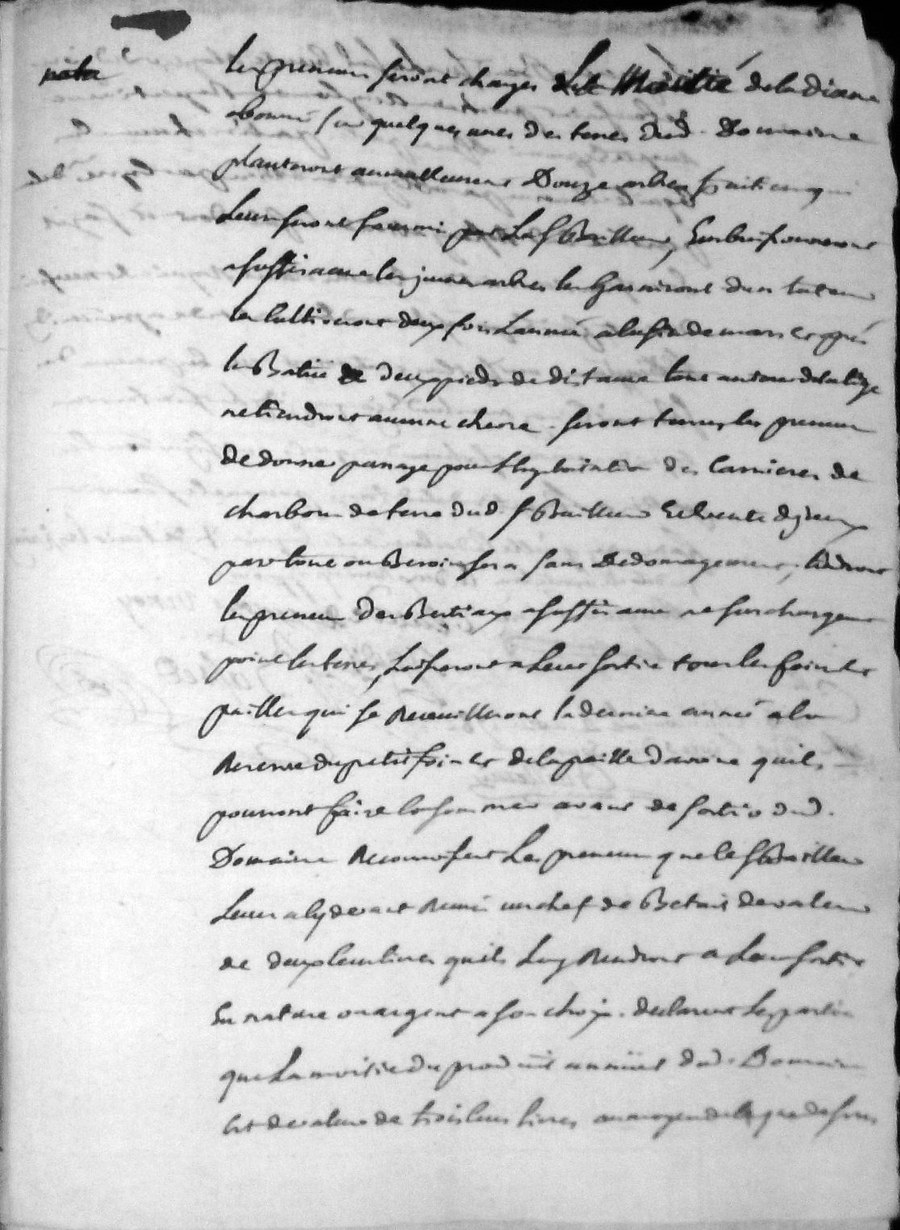 nota
les preneurs seront charges de la Moitié de la disme
abonné sur quelques unes des terres dud. Domaine
planteront annuellement Douze arbres fruitiers qui
Leurs seront fourni par Le sr Bailleur,
a suffisance les jeunes arbres les Garniront
les cultiveront deux fois Lannée a la fin de mars et
le de deux pieds de tout autour de la tige
ne tiendront aucune chevre. seront tenus les preneurs
de donner passage pour Lexploitation des Carrieres de
charbon de terre dud. sr Bailleur et vente dyceux
par tout ou Besoin sera sans dedomagement, tiendront
les preneurs des Bestiaux a suffisance ne surchargeront
point les terres, Laisseront a Leur sortie tous les foin et
pailles qui se Recueilleront la derniere année a la
Reserve du petit foin et de la paille davoine quils
pourront faire Consommer avant de sortir dud.
Domaine Reconnoissent Les preneurs que le sr Bailleur
Leurs a cy devant Remis un chef de Betail de valeur
de deux Cent livres quils Luy Rendront a Leur sortie
En nature ou argent a son choix. declarent Les parties
que La moitié du produit annuel dud. Domaine
Est de valeur de trois Cent livres au moyen de